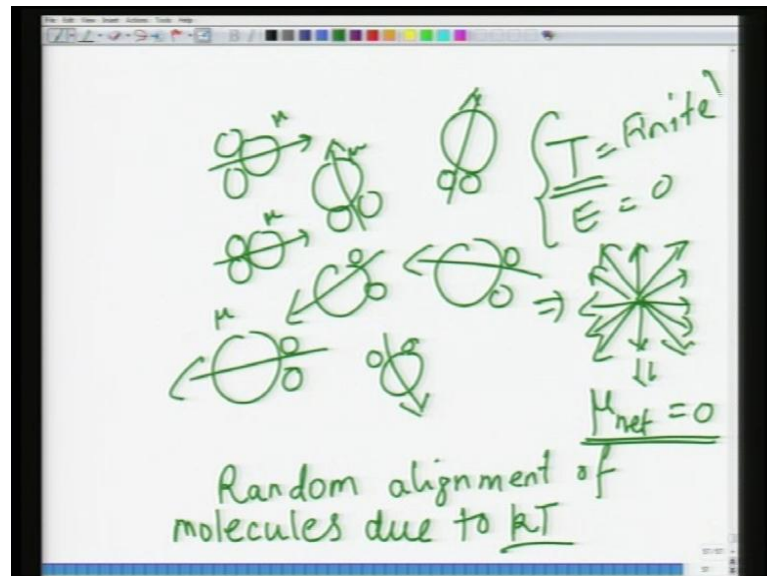 File Edit View Insert Actions Tools Help
μ
μ
μ
μ
T = Finite
E = 0
μnet = 0
Random alignment of
molecules due to kT